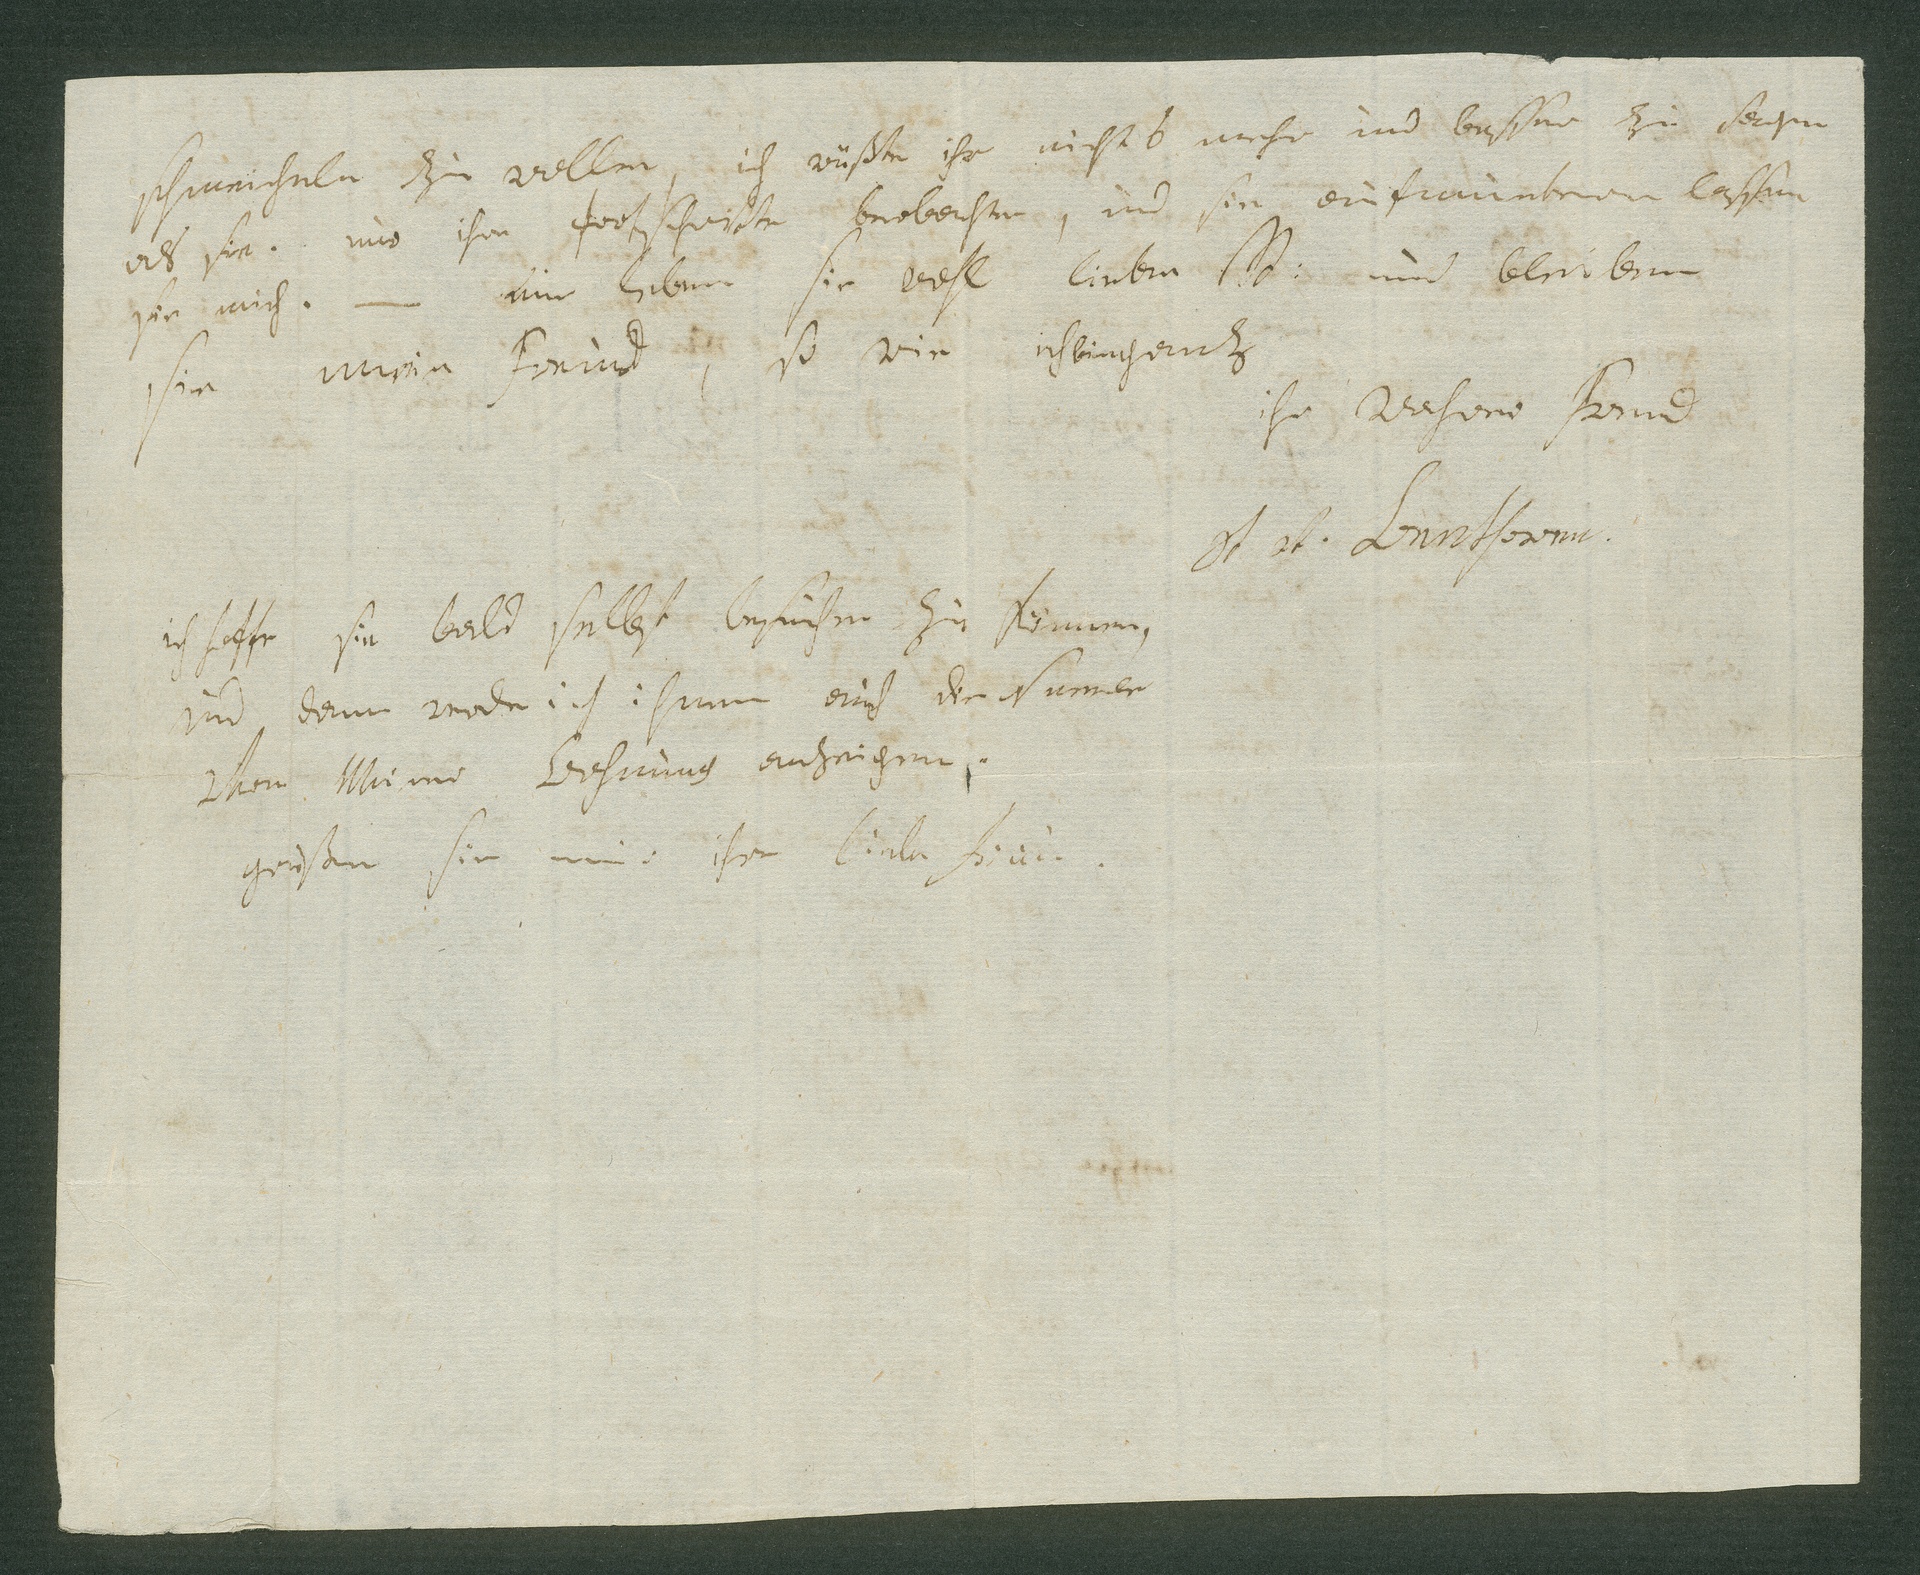 schmeicheln zu wollen, ich wüßte ihr nichts mehr und besser zu sagen
als sie. nur ihre fortschritte beobachten, und sie aufmuntern lassen
sie mich. — nun leben sie wohl lieber St: und bleiben
sie mein Freund, so wie ich bin ganz
ihr wahrer Freund
Beethowen.
ich hoffe sie bald selbst besuchen zu können,
und dann werde ich ihnen auch die Numer
von Meiner Wohnung anzeigen.
grüßen sie mir ihre liebe Frau.